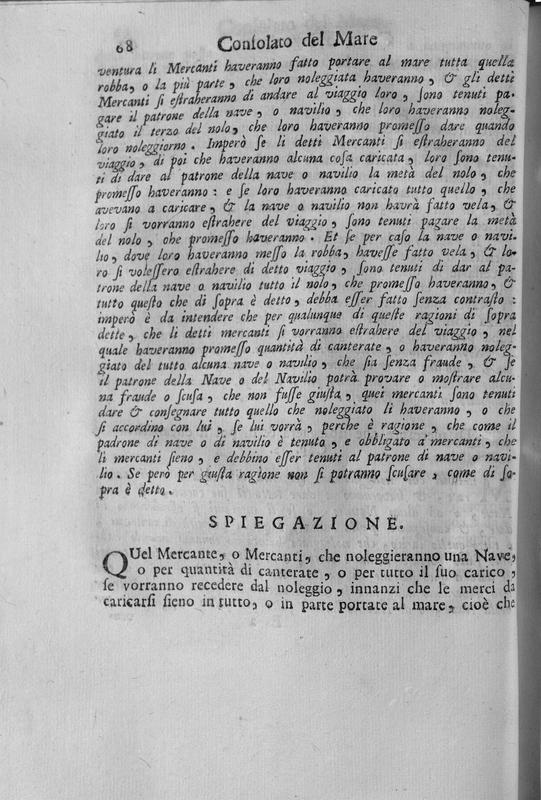 68 Consolato del Mare
ventura li Mercanti haveranno fatto portare al mare tutta quella
robba, o la più parte, che loro noleggiata haveranno, & gli detti
Mercanti si estraheranno di andare al viaggio loro, sono tenuti pa-
gare il patrone della nave, o navilio, che loro haveranno noleg-
giato il terzo del nolo, che loro haveranno promesso dare quando
loro noleggiorno. Imperò se li detti Mercanti si estraheranno del
viaggio, di poi che haveranno alcuna cosa caricata, loro sono tenu-
ti di dare al patrone della nave o navilio la metà del nolo, che
promesso haveranno: e se loro haveranno caricato tutto quello, che
avevano a caricare, & la nave o navilio non havrà fatto vela, &
loro si vorranno estrahere del viaggio, sono tenuti pagare la metà
del nolo, che promesso haveranno. Et se per caso la nave o navi-
lio, dove loro haveranno messo la robba, havesse fatto vela, & lo-
ro si volessero estrahere di detto viaggio, sono tenuti di dar al pa-
trone della nave o navilio tutto il nolo, che promesso haveranno, &
tutto questo che di sopra è detto, debba esser fatto senza contrasto:
imperò è da intendere che per qualunque di queste ragioni di sopra
dette, che li detti mercanti si vorranno estrahere del viaggio, nel
quale haveranno promesso quantità di canterate, o haveranno noleg-
giato del tutto alcuna nave o navilio, che sia senza fraude, & se
il patrone della Nave o del Navilio potrà provare o mostrare alcu-
na fraude o scusa, che non fusse giusta, quei mercanti sono tenuti
dare & consegnare tutto quello che noleggiato li haveranno, o che
si accordino con lui, se lui vorrà, perche è ragione, che come il
padrone di nave o di navilio è tenuto, e obbligato a' mercanti, che
li mercanti sieno, e debbino esser tenuti al patrone di nave o navi-
lio. Se però per giusta ragione non si potranno scusare, come di so-
pra è detto.
SPIEGAZIONE.
QUel Mercante, o Mercanti, che noleggieranno una Nave,
o per quantità di canterate, o per tutto il suo carico,
se vorranno recedere dal noleggio, innanzi che le merci da
caricarsi sieno in tutto, o in parte portate al mare, cioè che